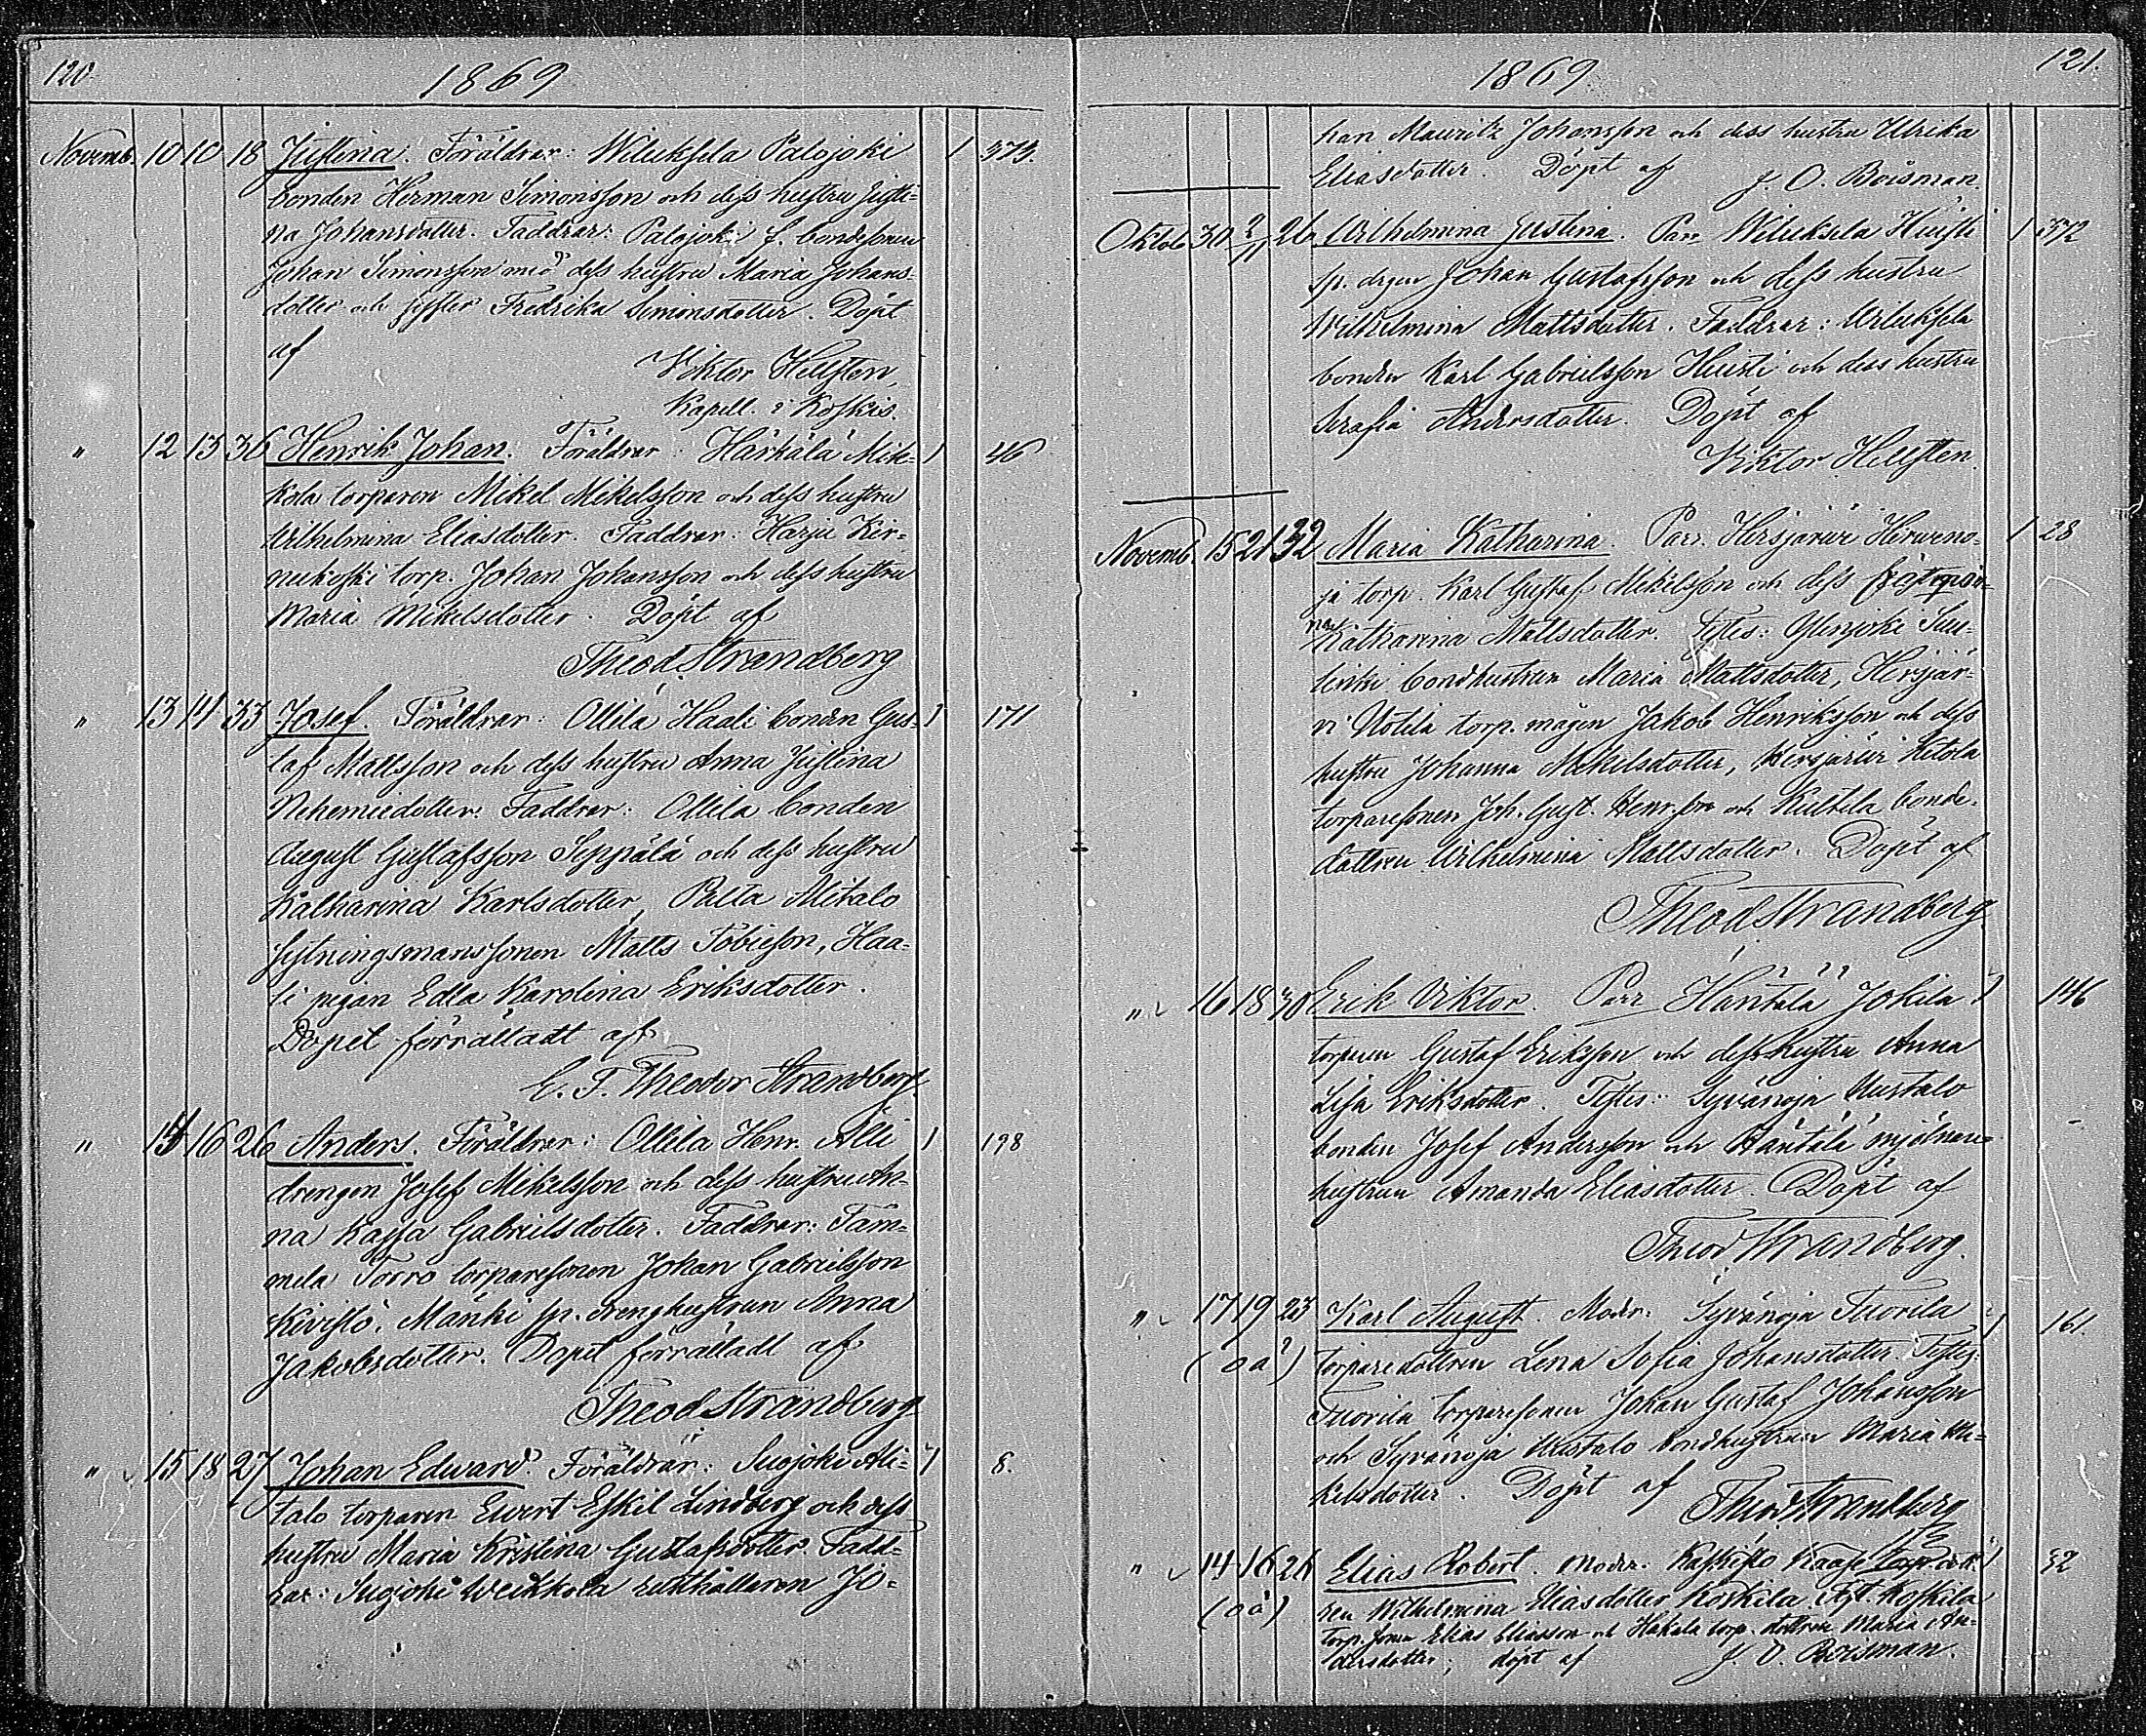 120
1869
Novemb. 10 10 18 Justina. Föräldrar: Wiluksela Palojoki 1 373.
bonden Herman Simonsson och dess hustru Justi-
na Johansdotter. Faddrar: Palojoki f. bondesonen
Johan Simonsson med dess hustru Maria Johans-
dotter och syster Fredrika Simonsdotter. Döpt
af
Viktor Hellsten,
Kapell. i Koskis.
" 12 13 36 Henrik Johan. Föräldrar: Härkälä Mik- 1 46
kola torparen Mikel Mikelsson och dess hustru
Wilhelmina Eliasdotter. Faddrar: Harju Ker-
nukoski torp. Johan Johansson och dess hustru
Maria Mikelsdotter. Döpt af
Theod Strandberg
" 13 14 33 Josef. Föräldrar: Ollila Haali bonden Gus- 1 171
taf Mattsson och dess hustru Anna Justina
Nehemiedotter. Faddrar: Ollila bonden
August Gustafsson Seppälä och dess hustru
Katharina Karlsdotter, Palta Alitalo
sytningsmanssonen Matts Tobiesson, Haa-
li pigan Edla Karolina Eriksdotter.
Dopet förrättadt af
C. F. Theodor Strandberg.
" 14 16 26 Anders. Föräldrar: Ollila Henr. Alli 1 198
drengen Josef Mikelsson och dess hustru An-
na Kajsa Gabrielsdotter. Faddrar: Tam-
mela Torro torparesonen Johan Gabrielsson
Kivistö, Mänki sp. drenghustrun Anna
Jakobsdotter. Dopet förrättadt af
Theod Strandberg
" 15 18 27 Johan Edward. Föräldrar: Suojoki Ali- 1 8.
talo torparen Evert Eskil Lindberg och dess
hustru Maria Kristina Gustafsdotter. Fadd-
rar: Suojoki Weikkola rusthållaren Jo-
1869.
121.
han Mauritz Johansson och dess hustru Ulrika
Eliasdotter. Döpt af J. O. Boisman.
Oktob 30 2/11 26 Wilhelmina Justina. Parr Wiluksela Huisti 1 372
sp. drgen Johan Gustafsson och dess hustru
Wilhelmina Mattsdotter. Faddrar: Wiluksela
bonden Karl Gabrielsson Huisti och dess hustru
Serafia Andersdotter. Döpt af
Viktor Hellsten.
Novemb. 15 21 32 Maria Katharina. Parr. Hirsjärvi Hirveno- 1 28
ja torp. Karl Gustaf Mikelsson och dess fästeqvin-
na Katharina Mattsdotter. Testes: Ylenjoki
bondhustrun Maria Mattsdotter, Hirsjär-
vi Uotila torp. mågen Jakob Henriksson och dess
hustru Johanna Mikelsdotter, Hirsjärvi Ketola
torparesonen Joh. Gust. Henr.son och Kultela bonde-
dottren Wilhelmina Mattsdotter. Döpt af
Theod Strandberg.
" 16 18 30 Erik Viktor. Parr Häntälä Jokila 1 146
torparen Gustaf Eriksson och dess hustru Anna
Lisa Eriksdotter. Testes: Syvänoja Uustalo
bonden Josef Andersson och Häntälä mjölnare-
hustrun Amanda Eliasdotter. Döpt af
Theod Strandberg.
" 17 19 23 Karl August. Modr: Syvänoja Tuorila 1 161.
(oä) torparedottren Lena Sofia Johansdotter. Testes:
Tuorila torparesonen Johan Gustaf Johansson
och Syvänoja Uustalo bondhustrun Maria Mi-
kelsdotter. Döpt af Theod Strandberg
" 14 16 26 Elias Robert. Moder: Kaskisto torp. dott- 1 52
(oä) ren Wilhelmina Eliasdotter Koskila. Tst. Koskila
torp. sonen Elias Eliasson och Hakala torp. dottren Maria An-
dersdotter; döpt af J. O. Boisman.